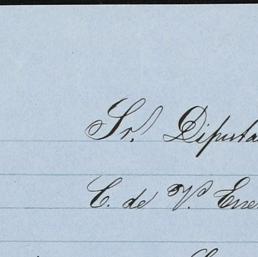 Sr. Diputa
C. de V. Ene